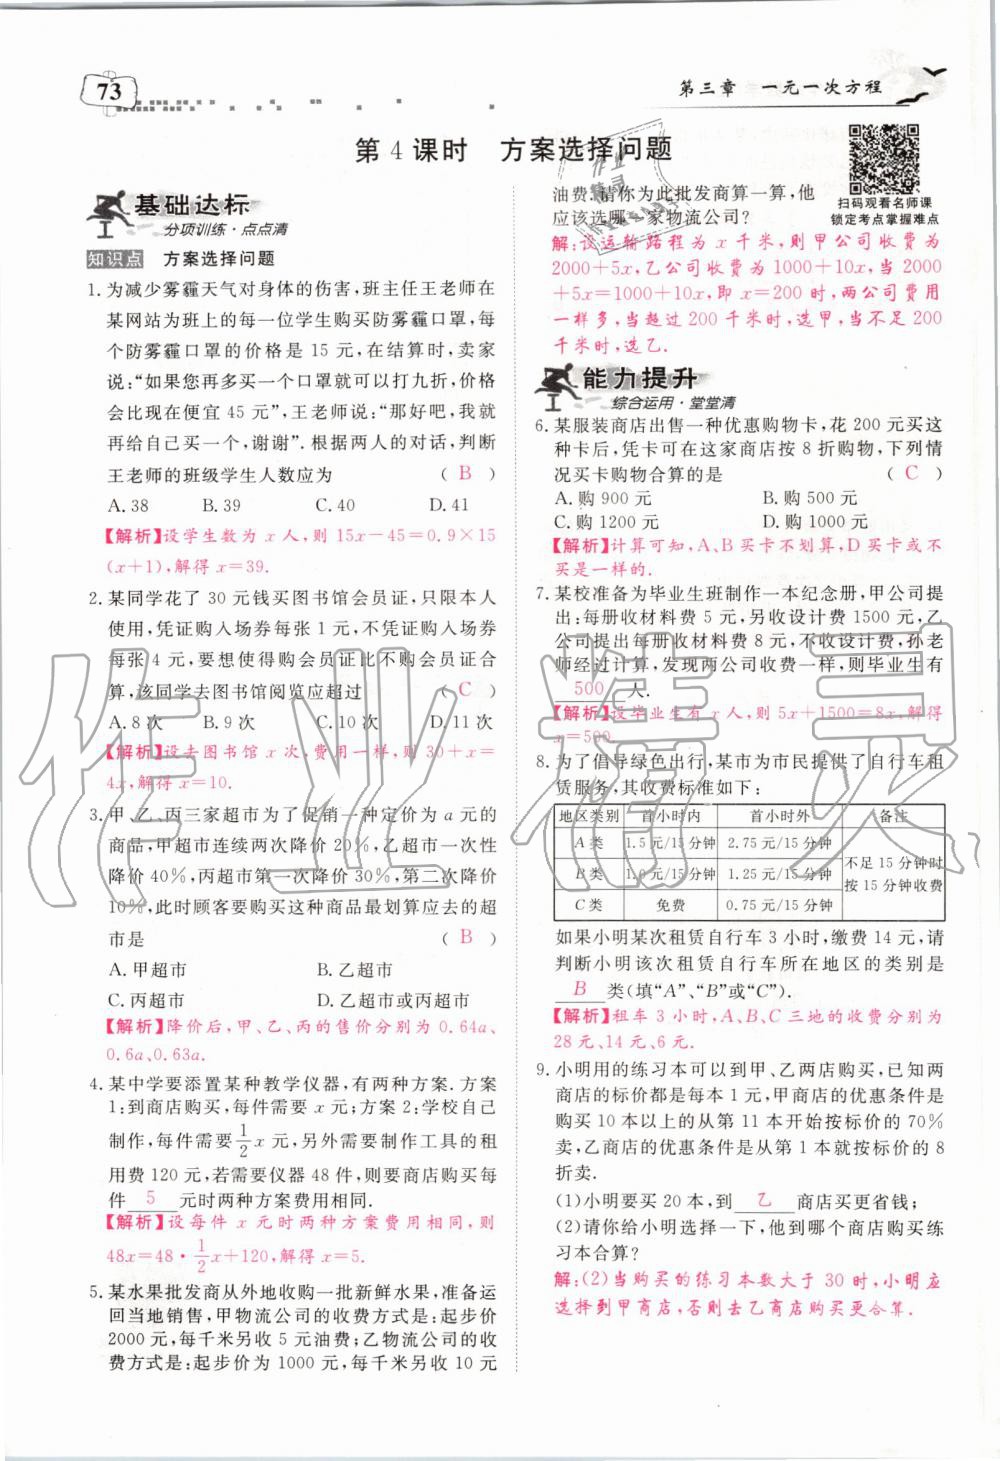 73
第三章　一元一次方程
第 4 课时　方案选择问题
基础达标
分项训练·点点清
知识点　方案选择问题
1. 为减少雾霾天气对身体的伤害,班主任王老师在
某网站为班上的每一位学生购买防雾霾口罩,每
个防雾霾口罩的价格是 15 元,在结算时,卖家
说:“如果您再多买一个口罩就可以打九折,价格
会比现在便宜 45 元”,王老师说:“那好吧,我就
再给自己买一个,谢谢”.根据两人的对话,判断
王老师的班级学生人数应为 ( B )
A. 38 B. 39 C. 40 D. 41
【解析】设学生数为 x 人,则 15x－45＝0.9×15
(x＋1),解得 x＝39.
2. 某同学花了 30 元钱买图书馆会员证,只限本人
使用,凭证购入场券每张 1 元,不凭证购入场券
每张 4 元,要想使得购会员证比不购会员证合
算,该同学去图书馆阅览应超过 ( C )
A. 8 次 B. 9 次 C. 10 次 D. 11 次
【解析】设去图书馆 x 次,费用一样,则 30＋x＝
4x,解得 x＝10.
3. 甲、乙、丙三家超市为了促销一种定价为 a 元的
商品,甲超市连续两次降价 20%,乙超市一次性
降价 40%,丙超市第一次降价 30%,第二次降价
10%,此时顾客要购买这种商品最划算应去的超
市是 ( B )
A. 甲超市 B. 乙超市
C. 丙超市 D. 乙超市或丙超市
【解析】降价后,甲、乙、丙的售价分别为 0.64a、
0.6a、0.63a.
4. 某中学要添置某种教学仪器,有两种方案. 方案
1:到商店购买,每件需要 x 元;方案 2:学校自己
制作,每件需要 1/2 x 元,另外需要制作工具的租
用费 120 元,若需要仪器 48 件,则要商店购买每
件 5 元时两种方案费用相同.
【解析】设每件 x 元时两种方案费用相同,则
48x＝48·1/2 x＋120,解得 x＝5.
5. 某水果批发商从外地收购一批新鲜水果,准备运
回当地销售,甲物流公司的收费方式是:起步价
2000 元,每千米另收 5 元油费;乙物流公司的收
费方式是:起步价为 1000 元,每千米另收 10 元
油费,请你为此批发商算一算,他
应该选哪一家物流公司?
扫码观看名师课
锁定考点掌握难点
解:设运输路程为 x 千米,则甲公司收费为
2000＋5x,乙公司收费为 1000＋10x,当 2000
＋5x＝1000＋10x,即 x＝200 时,两公司费用
一样多,当超过 200 千米时,选甲,当不足 200
千米时,选乙.
能力提升
综合运用·堂堂清
6. 某服装商店出售一种优惠购物卡,花 200 元买这
种卡后,凭卡可在这家商店按 8 折购物,下列情
况买卡购物合算的是 ( C )
A. 购 900 元 B. 购 500 元
C. 购 1200 元 D. 购 1000 元
【解析】计算可知,A、B 买卡不划算,D 买卡或不
买是一样的.
7. 某校准备为毕业生班制作一本纪念册,甲公司提
出:每册收材料费 5 元,另收设计费 1500 元,乙
公司提出每册收材料费 8 元,不收设计费,孙老
师经过计算,发现两公司收费一样,则毕业生有
500 人.
【解析】设毕业生有 x 人,则 5x＋1500＝8x,解得
x＝500.
8. 为了倡导绿色出行,某市为市民提供了自行车租
赁服务,其收费标准如下:
地区类别 首小时内 首小时外 备注
A 类 1.5 元/15 分钟 2.75 元/15 分钟
B 类 1.0 元/15 分钟 1.25 元/15 分钟
不足 15 分钟时
按 15 分钟收费
C 类 免费 0.75 元/15 分钟
如果小明某次租赁自行车 3 小时,缴费 14 元,请
判断小明该次租赁自行车所在地区的类别是
B 类(填“A”、“B”或“C”).
【解析】租车 3 小时,A、B、C 三地的收费分别为
28 元、14 元、6 元.
9. 小明用的练习本可以到甲、乙两店购买,已知两
商店的标价都是每本 1 元,甲商店的优惠条件是
购买 10 本以上的从第 11 本开始按标价的 70%
卖,乙商店的优惠条件是从第 1 本就按标价的 8
折卖.
(1)小明要买 20 本,到 乙 商店买更省钱;
(2)请你给小明选择一下,他到哪个商店购买练
习本合算?
解:(2)当购买的练习本数大于 30 时,小明应
选择到甲商店,否则去乙商店购买更合算.
作业精灵